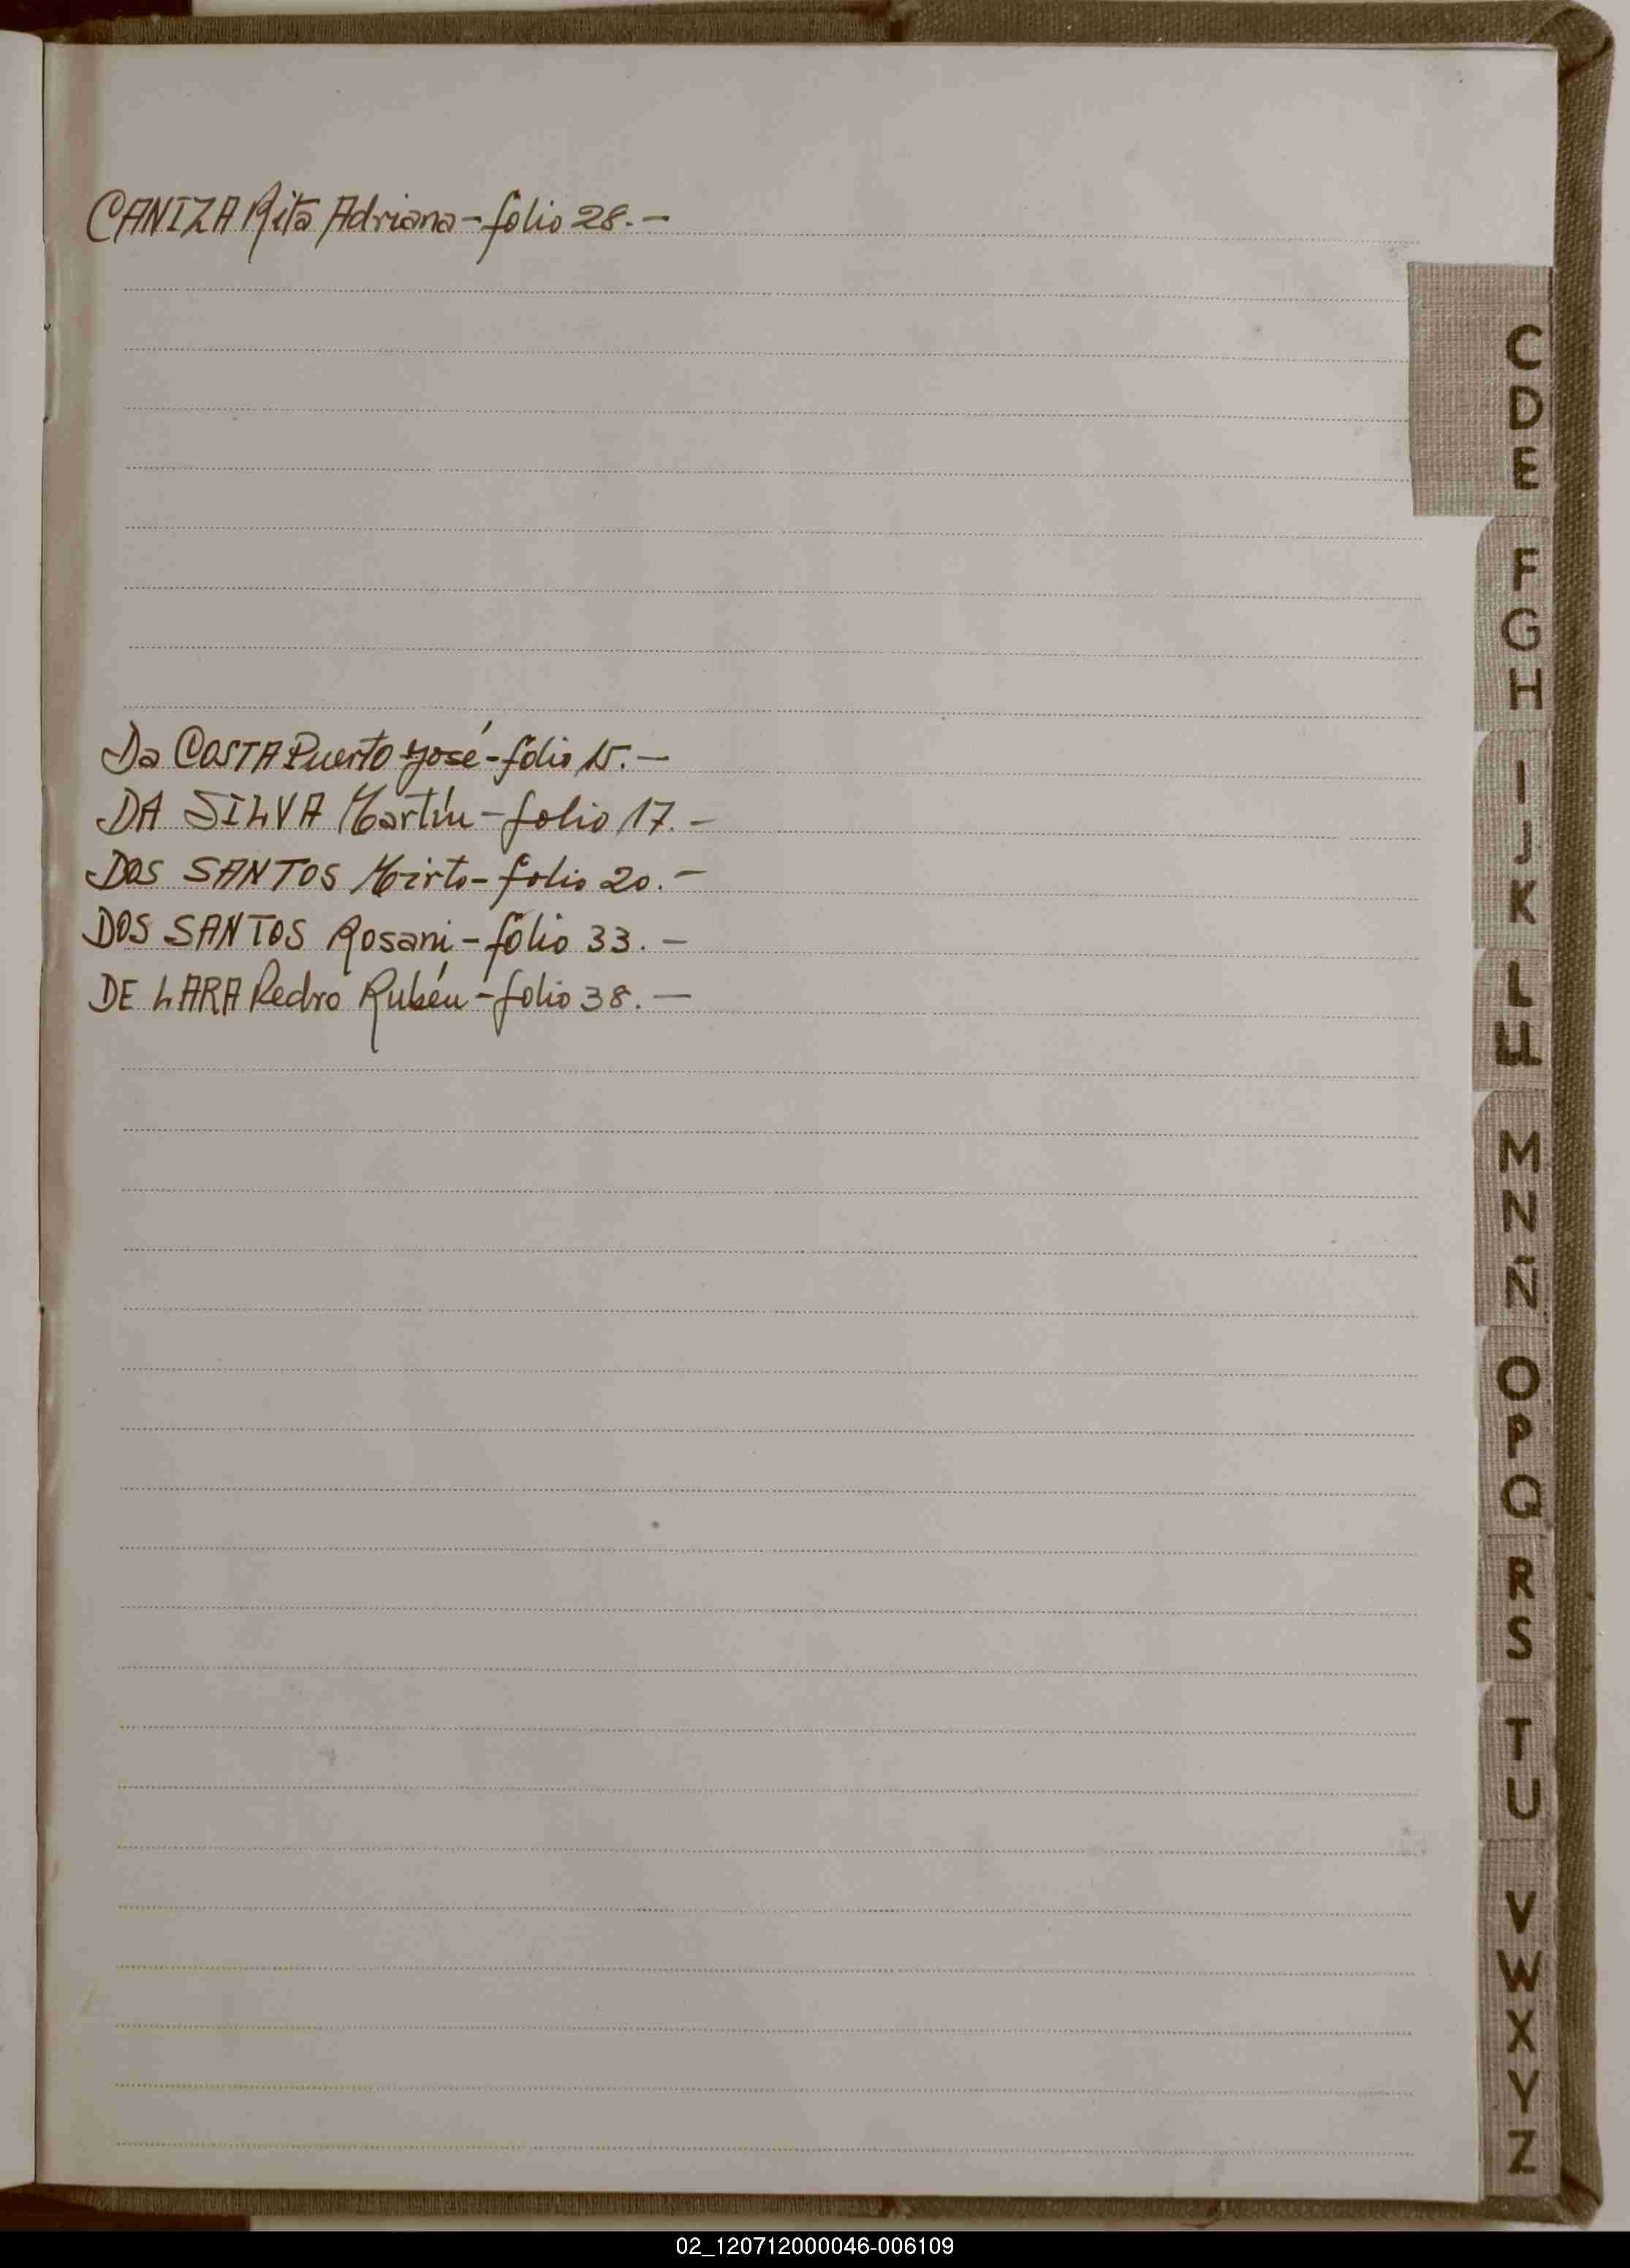 CANIZA Rita Adriana - folio 28. -
Da COSTA Puerto José - folio 15. -
DA SILVA Martín - folio 17. -
DOS SANTOS Mirto - folio 20. -
DOS SANTOS Rosani - folio 33. -
DE LARA Pedro Rubén - folio 38. -
C
D
E
F
G
H
I
J
K
L
LL
M
N
Ñ
O
P
Q
R
S
T
U
V
W
X
Y
Z
02_120712000046-006109